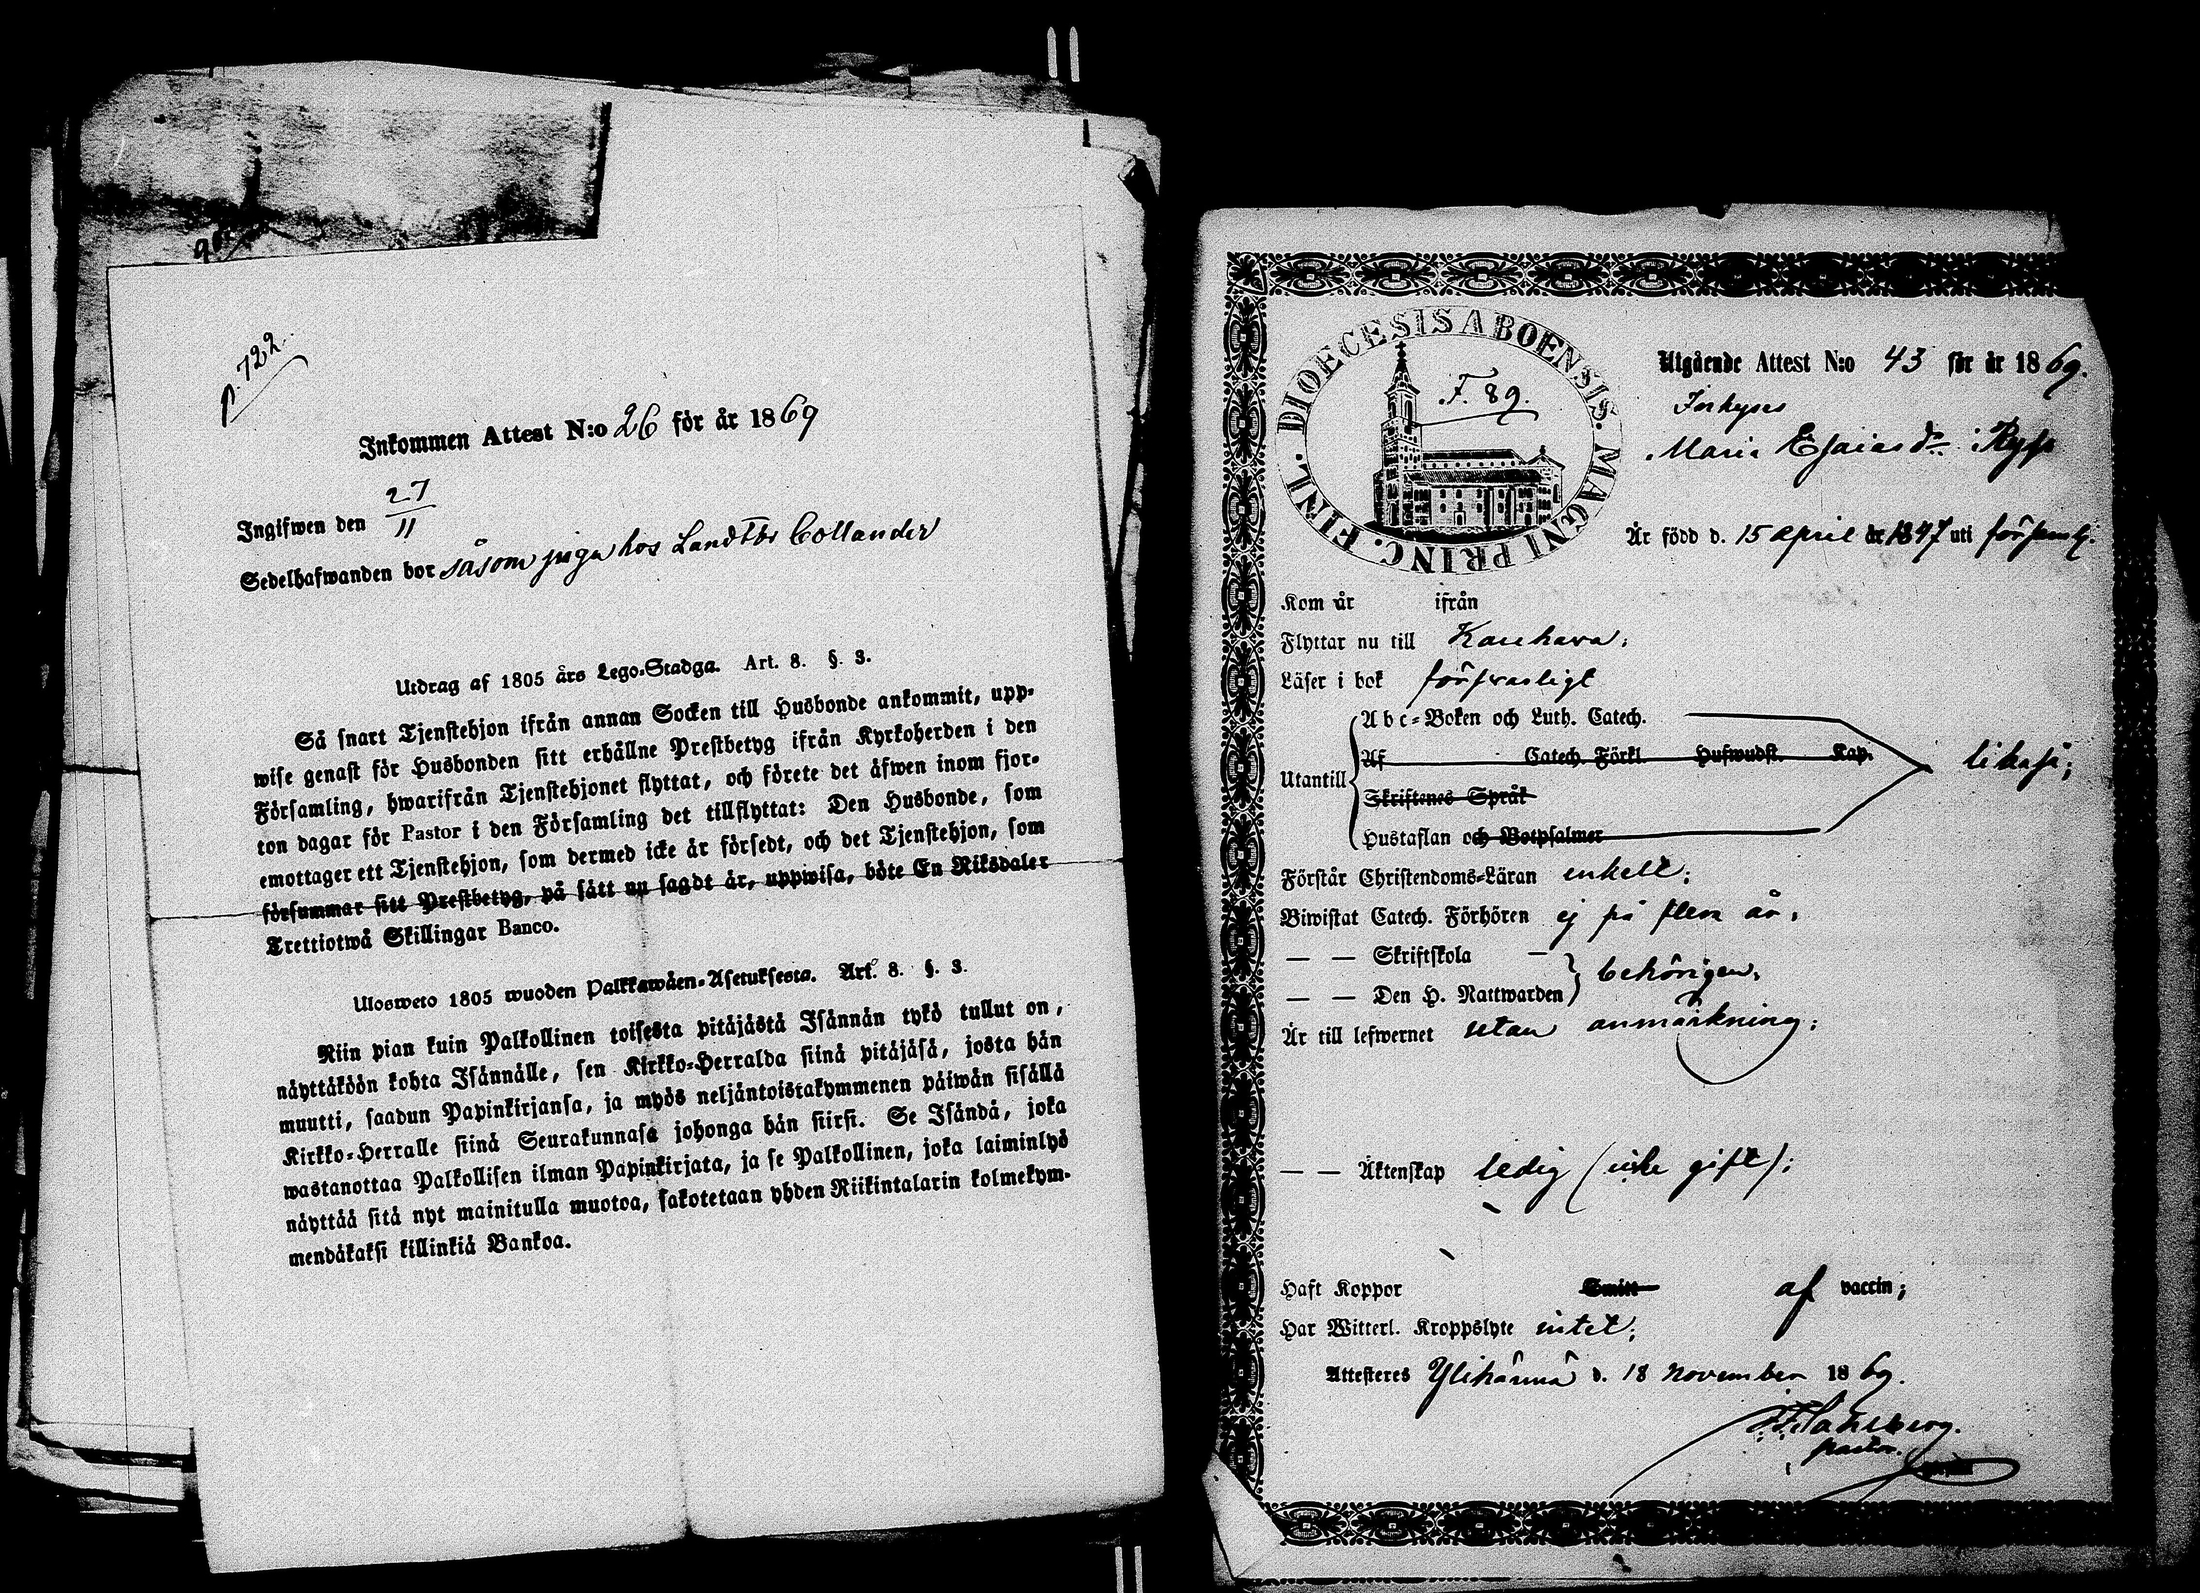 p. 722.
Inkommen Attest N:o 26 för år 1869
Ingifwen den 27/11
Sedelhafwanden bor såsom piga hos Landtbr Collander
Utdrag af 1805 års Lego-Stadga. Art. 8. §. 3.
Så snart Tjenstehjon ifrån annan Socken till Husbonde ankommit, upp-
wise genast för Husbonden sitt erhållne Prestbetyg ifrån Kyrkoherden i den
Församling, hwarifrån Tjenstehjonet flyttat, och förete det äfwen inom fjor-
ton dagar för Pastor i den Församling det tillflyttat: Den Husbonde, som
emottager ett Tjenstehjon, som dermed icke är försedt, och det Tjenstehjon, som
försummar sitt Prestbetyg, på sätt nu sagdt är, uppwisa, böte En Riksdaler
Trettiotwå Skillingar Banco.
Ulosweto 1805 wuoden Palkkawäen-Asetuksesta. Art. 8. §. 3.
Niin pian kuin Palkollinen toisesta pitäjästä Isännän tykö tullut on,
näyttäköön kohta Isännälle, sen Kirkko-Herralda siinä pitäjäsä, josta hän
muutti, saadun Papinkirjansa, ja myös neljäntoistakymmenen päiwän sisällä
Kirkko-Herralle siinä Seurakunnasa johonga hän siirsi. Se Isändä, joka
wastanottaa Palkollisen ilman Papinkirjata, ja se Palkollinen, joka laiminlyö
näyttää sitä nyt mainitulla muotoa, sakotetaan yhden Riikintalarin kolmekym-
mendäkaksi killinkiä Bankoa.
DIOECESIS ABOENSIS. MAGNI PRINC. FINL.
F. 89.
Utgående Attest N:o 43 för år 1869.
Inhyses
Maria Esaiasdr
Är född d. 15 april år 1847 uti förseml.
Kom år ifrån
Flyttar nu till Kauhava;
Läser i bok försvarligt
Abc-Boken och Luth. Catech.
Af Catech. Förkl. Hufwudst. Kap.
likaså;
Utantill
Skriftenes Språk
Hustaflan och Botpsalmer
Förstår Christendoms-Läran enkelt;
Biwistat Catech. Förhören ej på flera år,
— — Skriftskola —
behörigen,
— — Den H. Nattwarden
Är till lefwernet utan anmärkning;
— — Äktenskap ledig (icke gift);
Haft Koppor Smitt af vaccin;
Har Witterl. Kroppslyte intet;
Attesteres Ylihärmä d. 18 november 1869.
pastor.